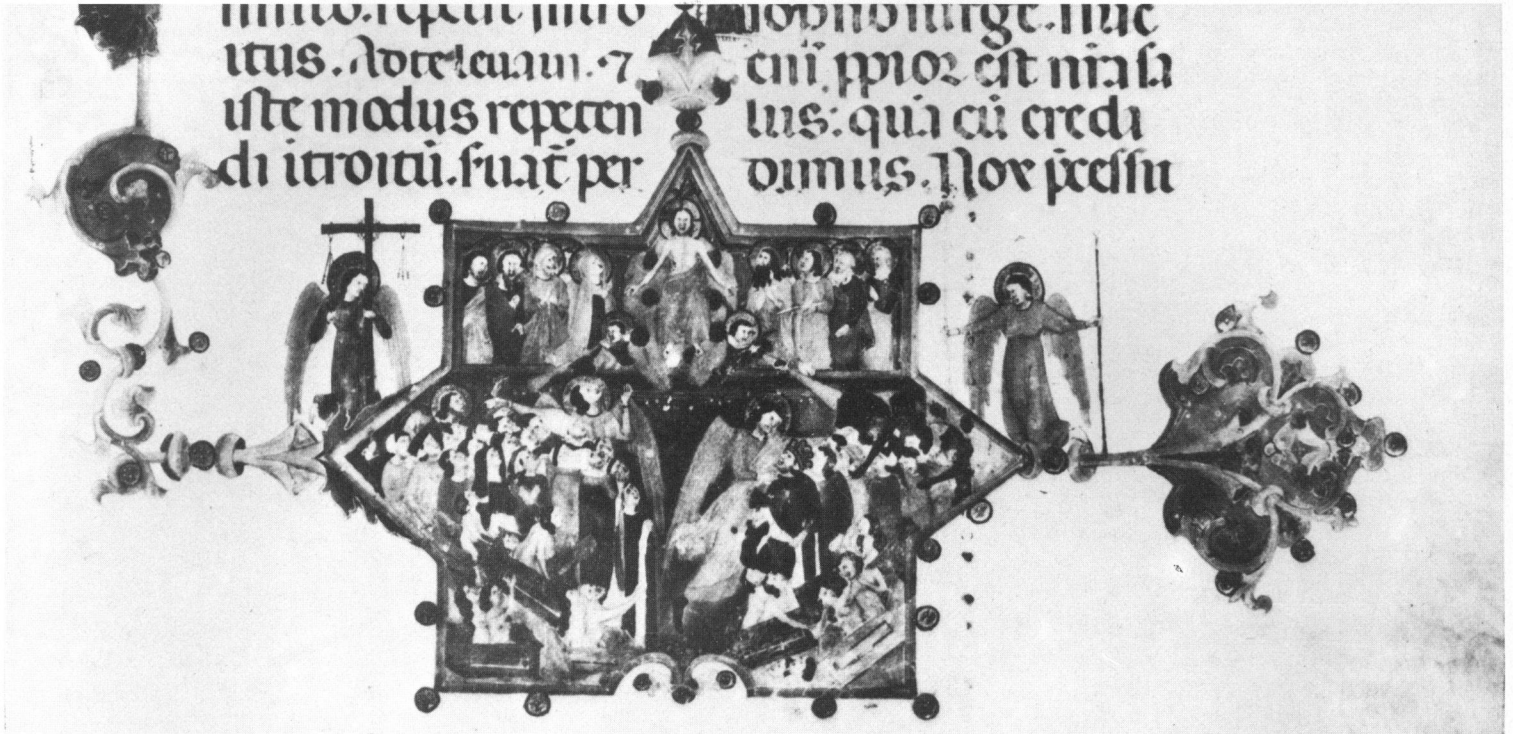 repetit intro
itus. Ad te leuaui. ⁊
iste modus repeten
di ītroitū. ſuat̄ per
ſurgē. nūc
eni ̄ppior est nr̄a sa
lus: quā cū credi
dimus. Nox p̄cessit